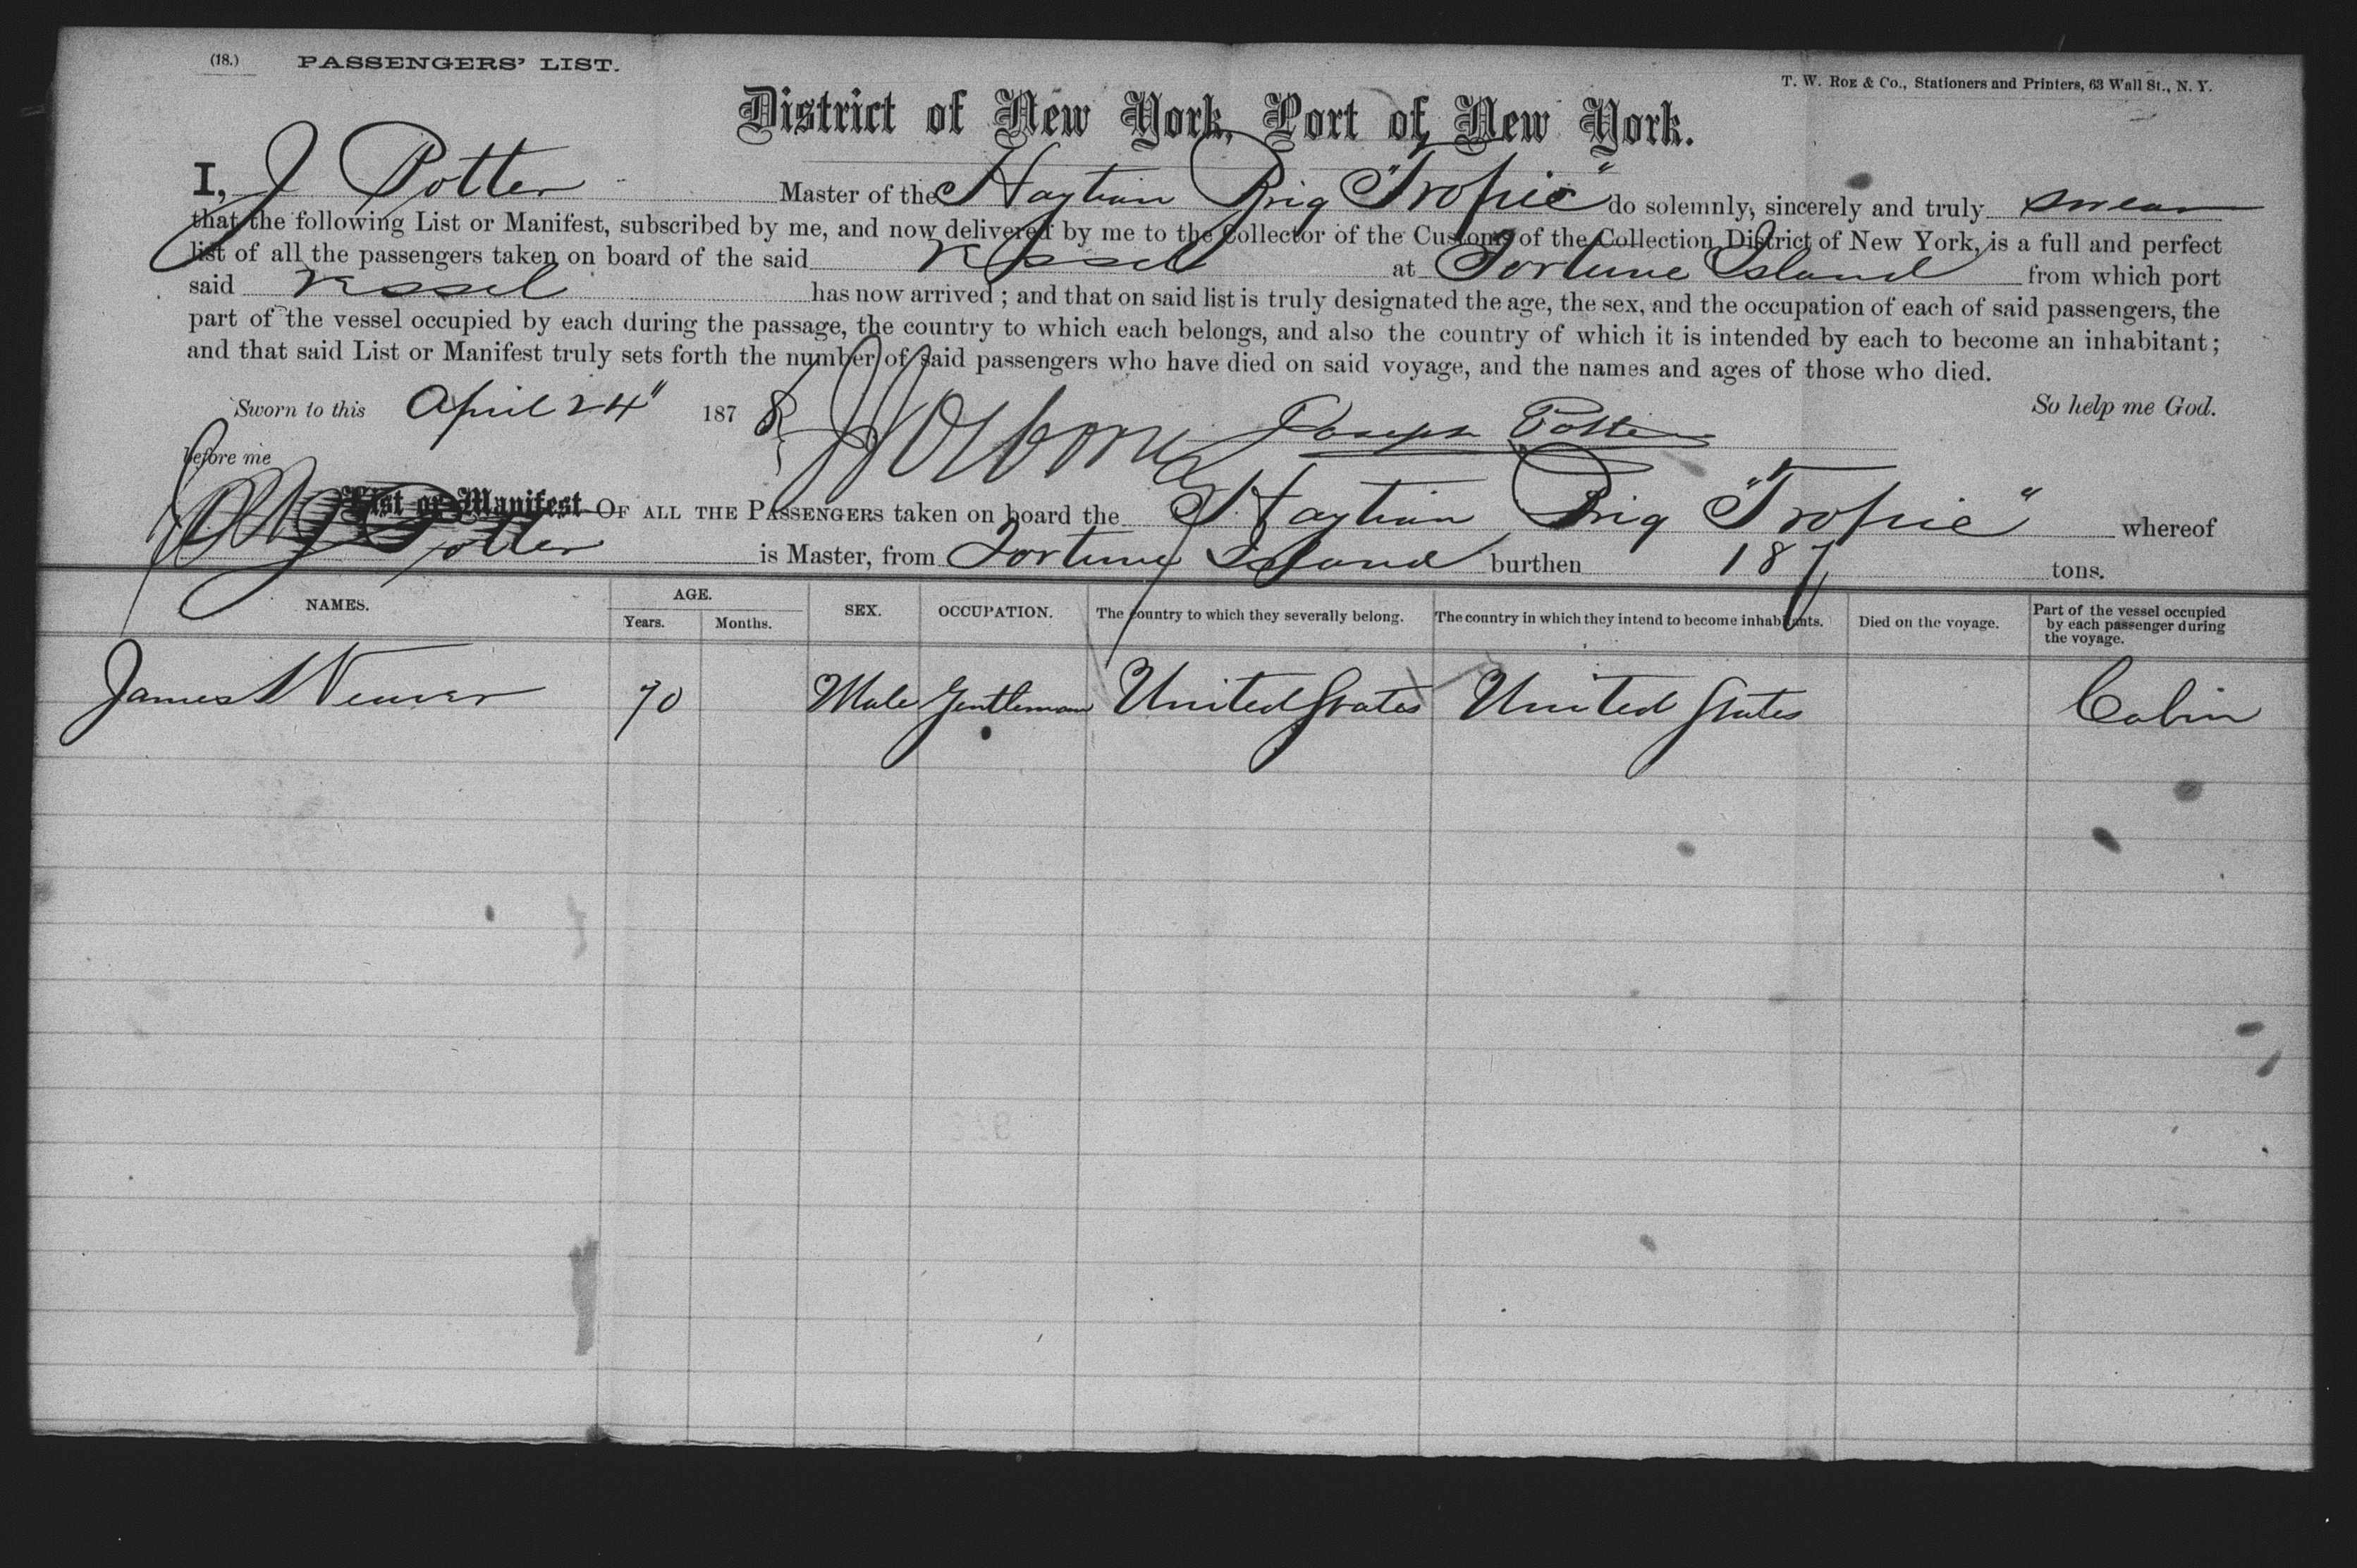 (18.) PASSENGERS' LIST.
T. W. ROE & Co., Stationers and Printers, 63 Wall St., N. Y.
District of New York, Port of New York.
I, J Potter Master of the Haytian Brig "Tropic" do solemnly, sincerely and truly swear
that the following List or Manifest, subscribed by me, and now delivered by me to the Collector of the Customs of the Collection District of New York, is a full and perfect
list of all the passengers taken on board of the said Vessel at Fortune Island from which port
said Vessel has now arrived ; and that on said list is truly designated the age, the sex, and the occupation of each of said passengers, the
part of the vessel occupied by each during the passage, the country to which each belongs, and also the country of which it is intended by each to become an inhabitant ;
and that said List or Manifest truly sets forth the number of said passengers who have died on said voyage, and the names and ages of those who died.
Sworn to this April 24" 1878 So help me God.
before me Osborne Joseph Potter
List or Manifest OF ALL THE PASSENGERS taken on board the Haytian Brig "Tropic" whereof
J Potter is Master, from Fortune Island burthen 187 tons.
NAMES. AGE. SEX. OCCUPATION. The country to which they severally belong. The country in which they intend to become inhabitants. Died on the voyage. Part of the vessel occupied by each passenger during the voyage.
Years. Months.
James Weaver 70 Male Gentleman United States United States Cabin